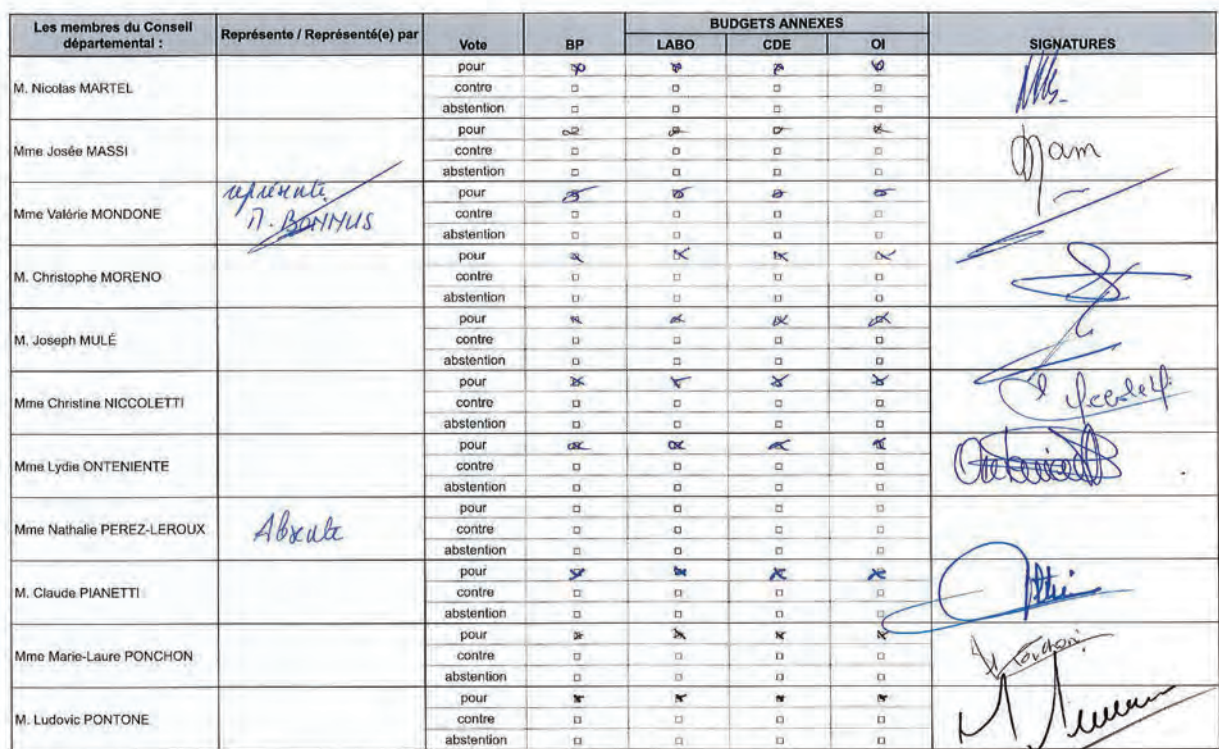 Les membres du Conseil départemental : Représente / Représenté(e) par Vote BP BUDGETS ANNEXES LABO CDE OI SIGNATURES
M. Nicolas MARTEL
pour
contre
abstention
Mme Josée MASSI
pour
contre
abstention
Mme Valérie MONDONE
représente
M. BONNUS
pour
contre
abstention
M. Christophe MORENO
pour
contre
abstention
M. Joseph MULÉ
pour
contre
abstention
Mme Christine NICCOLETTI
pour
contre
abstention
Mme Lydie ONTENIENTE
pour
contre
abstention
Mme Nathalie PEREZ-LEROUX
Absente
pour
contre
abstention
M. Claude PIANETTI
pour
contre
abstention
Mme Marie-Laure PONCHON
pour
contre
abstention
M. Ludovic PONTONE
pour
contre
abstention